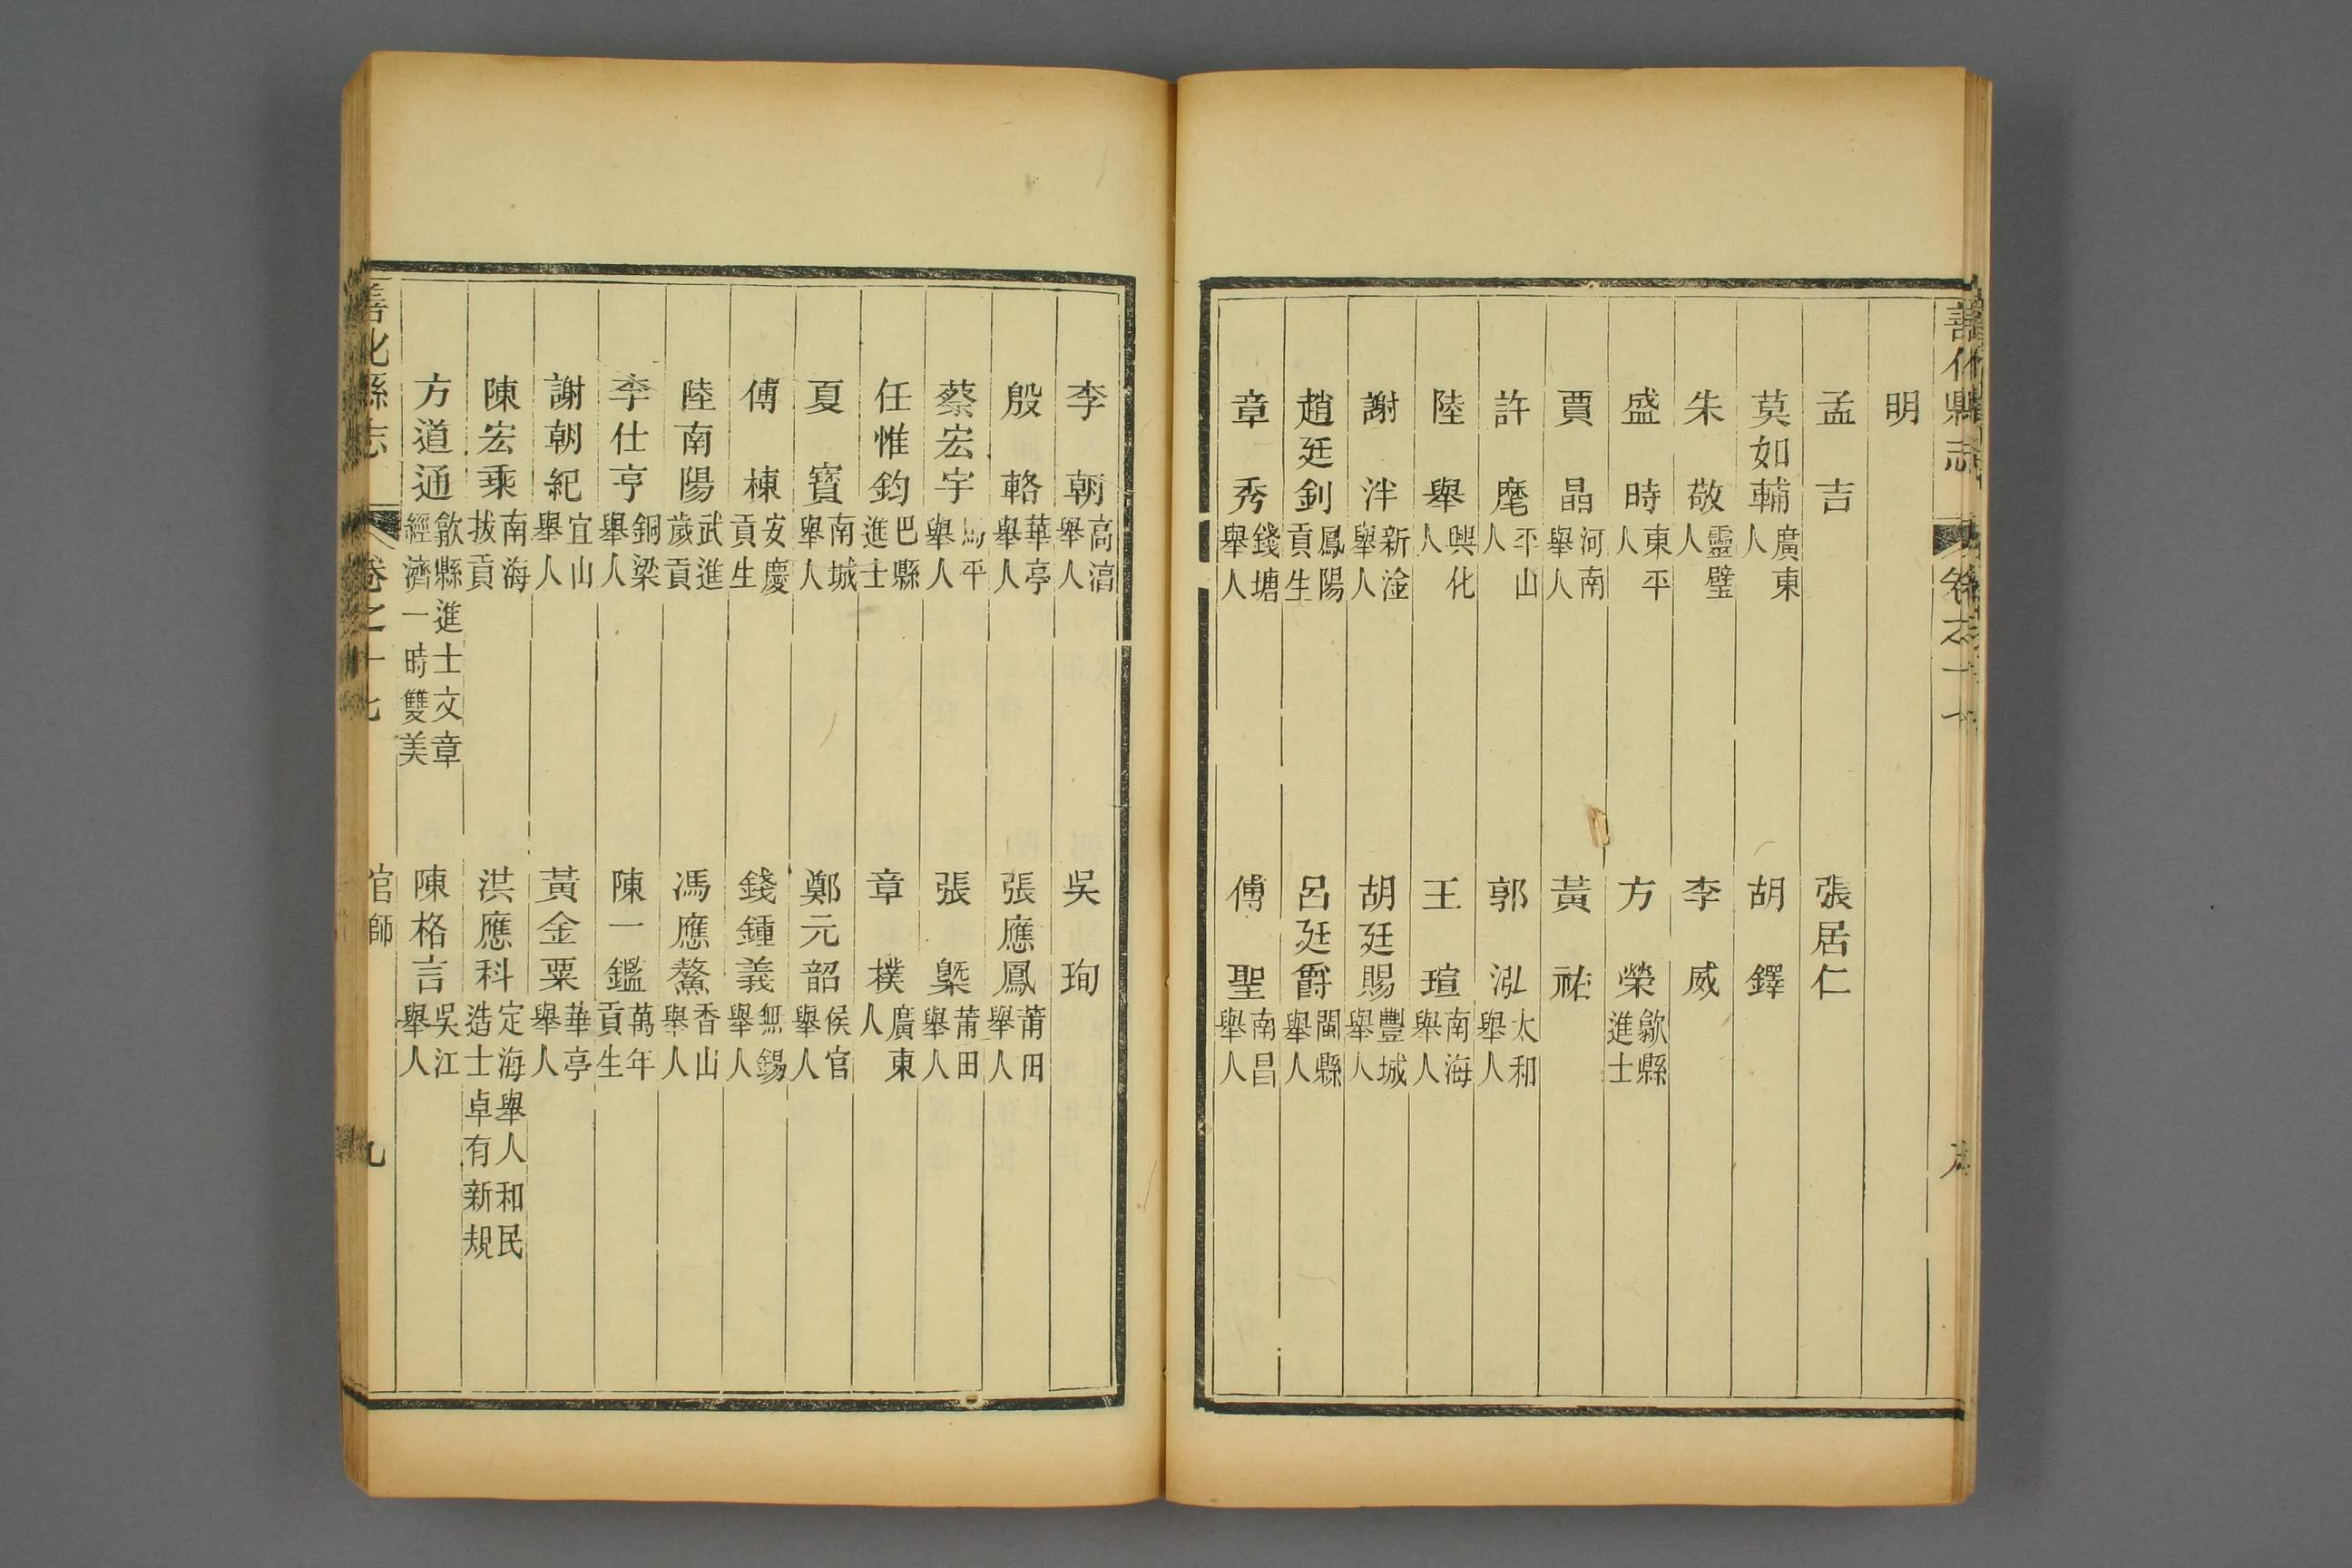 善化縣志
明
孟吉　張居仁
莫如輔廣東人　胡鐸
朱敬靈璧人　李威
盛時東平人　方榮歙縣進士
賈晶河南舉人　黃祐
許麾平山人　郭泓太和舉人
陸舉興化人　王瑄南海舉人
謝泮新淦舉人　胡廷賜豐城舉人
趙廷釗鳳陽貢生　呂廷爵閩縣舉人
章秀錢塘舉人　傅聖南昌舉人
李朝高淯舉人　吳珣
殷輅華亭舉人　張應鳳莆田舉人
蔡宏宇馬平舉人　張槩莆田舉人
任惟鈞巴縣進士　章樸廣東人
夏寶南城舉人　鄭元韶侯官舉人
傅棟安慶貢生　錢鍾義無錫舉人
陸南陽武進歲貢　馮應鰲香山舉人
李仕亨銅梁舉人　陳一鑑萬年貢生
謝朝紀宜山舉人　黃金粟華亭舉人
陳宏乘南海拔貢　洪應科定海舉人和民造士卓有新規
方道通歙縣進士文章經濟一時雙美　陳格言吳江舉人
善化縣志　卷之十七　官師　九